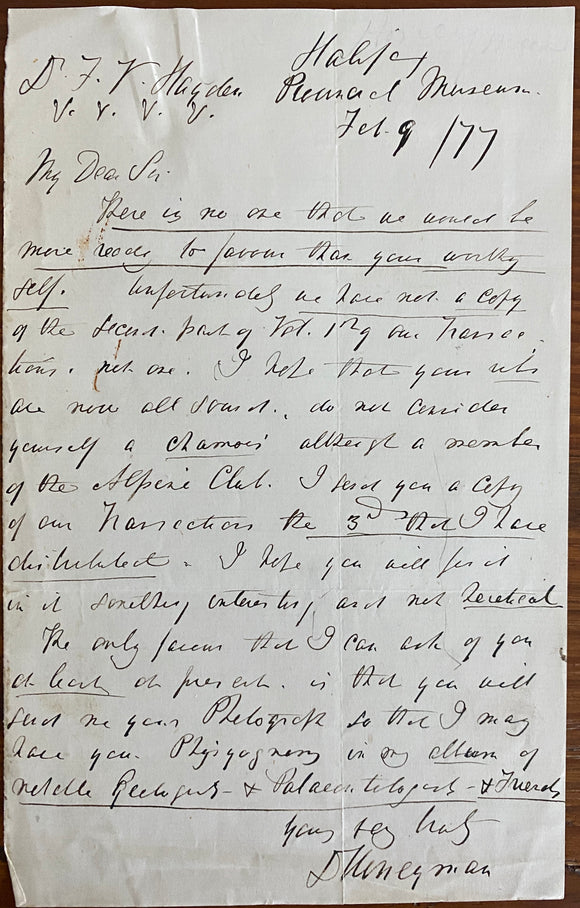 Halifax
Dr. F. V. Hayden Provincial Museum.
V. V. V. V.
Feb. 9 /77
My Dear Sir
There is no one that we would be
more ready to favour than your worthy
self. Unfortunately we have not a copy
of the second part of Vol. 1st of our Transac-
tions. not one. I hope that your ribs
are now all sound., do not consider
yourself a chamois although a member
of the Alpine Club. I send you a copy
of our Transactions the 3rd that I have
distributed. I hope you will find
in it something interesting and not heretical
The only favour that I can ask of you
at least at present. is that you will
send me your Photograph so that I may
have your Physyognomy in my album of
notable Geologists - & Palaeontologists - & Friends
yours very truly
D Honeyman